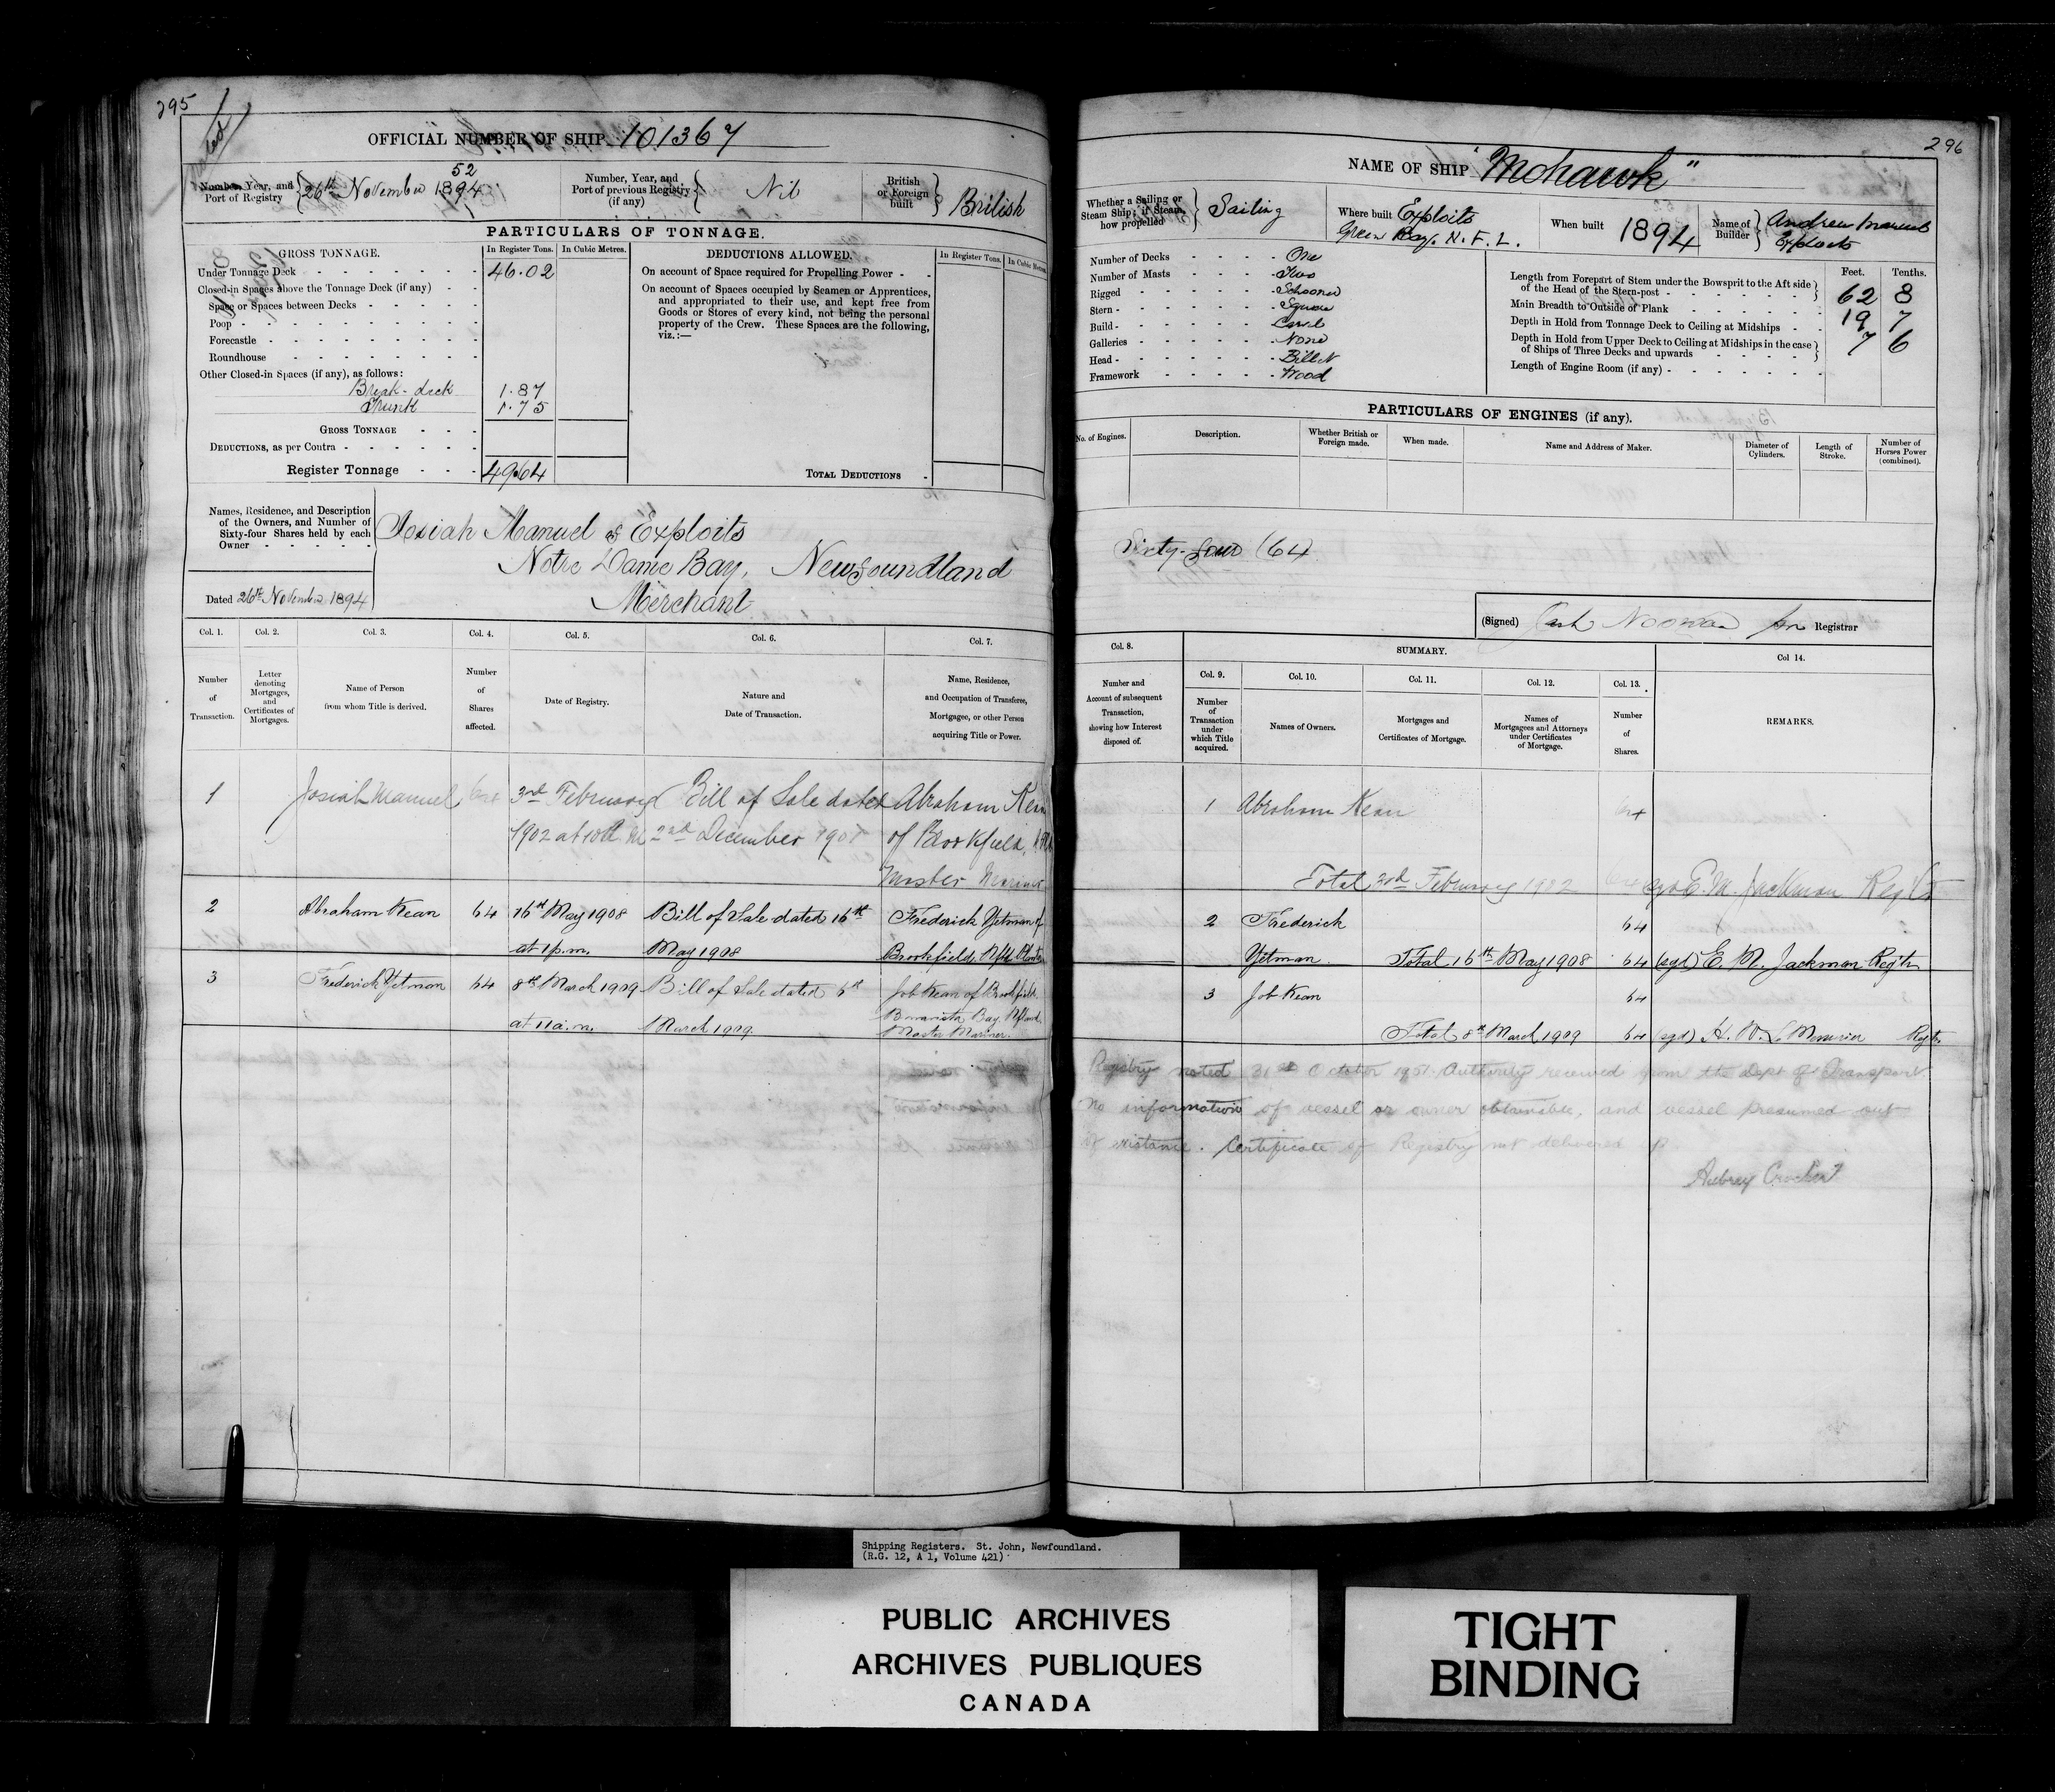 295
OFFICIAL NUMBER OF SHIP. 101367
Number, Year, and Port of Registry } 26th November 52 1894
Number, Year, and Port of previous Registry (if any) { Nil
British or Foreign built } British
PARTICULARS OF TONNAGE.
GROSS TONNAGE.
In Register Tons. In Cubic Metres.
Under Tonnage Deck - 46.02
Closed-in Spaces above the Tonnage Deck (if any) -
Space or Spaces between Decks -
Poop -
Forecastle -
Roundhouse -
Other Closed-in Spaces (if any), as follows:
Break-deck 1.87
Trunk 1.75
GROSS TONNAGE -
DEDUCTIONS, as per Contra -
Register Tonnage - 49.64
DEDUCTIONS ALLOWED.
In Register Tons. In Cubic Metres.
On account of Space required for Propelling Power -
On account of Spaces occupied by Seamen or Apprentices,
and appropriated to their use, and kept free from
Goods or Stores of every kind, not being the personal
property of the Crew. These Spaces are the following,
viz.:—
TOTAL DEDUCTIONS -
Names, Residence, and Description
of the Owners, and Number of
Sixty-four Shares held by each
Owner -
Josiah Manuel of Exploits
Notre Dame Bay, Newfoundland
Merchant
Dated 26th November 1894
Col. 1. Col. 2. Col. 3. Col. 4. Col. 5. Col. 6. Col. 7.
Number of Transaction.
Letter denoting Mortgages, and Certificates of Mortgages.
Name of Person from whom Title is derived.
Number of Shares affected.
Date of Registry.
Nature and Date of Transaction.
Name, Residence, and Occupation of Transferee, Mortgagee, or other Person acquiring Title or Power.
1 Josiah Manuel 64 3rd February Bill of Sale dated Abraham Kean
1902 at 10 A M 2nd December 1901 of Brookfield, Nfld
Master Mariner
2 Abraham Kean 64 16th May 1908 Bill of Sale dated 16th Frederick Yetman of
at 1 p.m. May 1908 Brookfield, Nfld
3 Frederick Yetman 64 8th March 1909 Bill of Sale dated 6th Job Kean of Brookfield
at 11 a.m. March 1909. Bonavista Bay, Nfland.
Master Mariner.
296
NAME OF SHIP "Mohawk"
Whether a Sailing or Steam Ship; if Steam, how propelled } Sailing
Where built Exploits
Green Bay. N.F.L.
When built 1894
Name of Builder } Andrew Manuel
Exploits
Number of Decks - One
Number of Masts - Two
Rigged - Schooner
Stern - Square
Build - Carvel
Galleries - None
Head - Billet
Framework - Wood
Feet. Tenths.
Length from Forepart of Stem under the Bowsprit to the Aft side of the Head of the Stern-post - 62 8
Main Breadth to Outside of Plank - 19 7
Depth in Hold from Tonnage Deck to Ceiling at Midships - 7 6
Depth in Hold from Upper Deck to Ceiling at Midships in the case of Ships of Three Decks and upwards -
Length of Engine Room (if any) -
PARTICULARS OF ENGINES (if any).
No. of Engines.
Description.
Whether British or Foreign made.
When made.
Name and Address of Maker.
Diameter of Cylinders.
Length of Stroke.
Number of Horses Power (combined).
Sixty-four (64)
(Signed) Noonan for Registrar
Col. 8.
SUMMARY.
Col. 9. Col. 10. Col. 11. Col. 12. Col. 13. Col 14.
Number and Account of subsequent Transaction, showing how Interest disposed of.
Number of Transaction under which Title acquired.
Names of Owners.
Mortgages and Certificates of Mortgage.
Names of Mortgagees and Attorneys under Certificates of Mortgage.
Number of Shares.
REMARKS.
1 Abraham Kean 64
Total 3rd February 1902 64 sgd E. M. Jackman Regtr
2 Frederick 64
Yetman. Total 16th May 1908 64 (sgd) E. M. Jackman Regtr
3 Job Kean 64
Total 8th March 1909 64 (sgd) H. W. LeMessurier Regtr
Registry noted 31st October 1951. Authority received from the Dept of Transport
No information of vessel or owner obtainable, and vessel presumed out
of existance. Certificate of Registry not delivered up.
Aubrey Crocker
Shipping Registers. St. John, Newfoundland.
(R.G. 12, A 1, Volume 421)
PUBLIC ARCHIVES
ARCHIVES PUBLIQUES
CANADA
TIGHT
BINDING